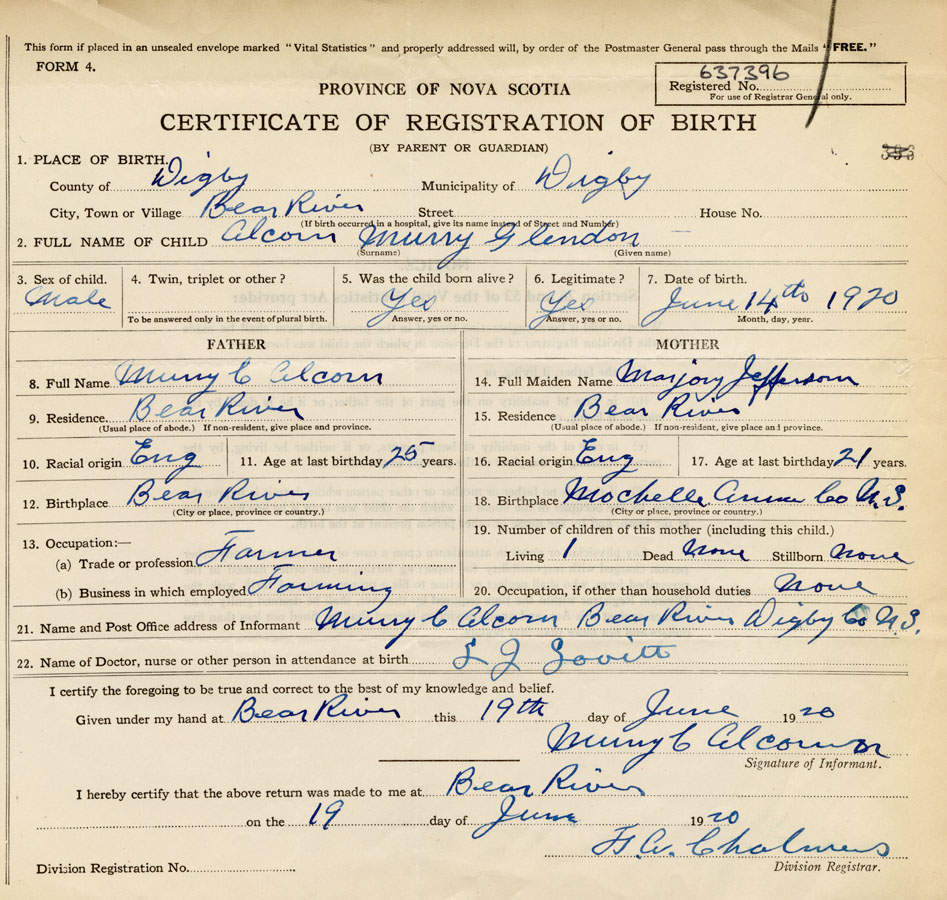 This form if placed in an unsealed envelope marked "Vital Statistics" and properly addressed will, by order of the Postmaster General pass through the Mails "FREE."
FORM 4.
637396
Registered No.
For use of Registrar General only.
PROVINCE OF NOVA SCOTIA
CERTIFICATE OF REGISTRATION OF BIRTH
(BY PARENT OR GUARDIAN)
1. PLACE OF BIRTH.
County of Digby Municipality of Digby
City, Town or Village Bear River Street House No.
(If birth occurred in a hospital, give its name instead of Street and Number)
2. FULL NAME OF CHILD Alcorn Murry Glendon
(Surname) (Given name)
3. Sex of child. 4. Twin, triplet or other? 5. Was the child born alive? 6. Legitimate? 7. Date of birth.
Male Yes Yes June 14th 1920
To be answered only in the event of plural birth. Answer, yes or no. Answer, yes or no. Month, day, year.
FATHER MOTHER
8. Full Name Murry C Alcorn 14. Full Maiden Name Marjory Jefferson
9. Residence. Bear River 15. Residence Bear River
(Usual place of abode.) If non-resident, give place and province. (Usual place of abode.) If non-resident, give place and province.
10. Racial origin Eng 11. Age at last birthday 25 years. 16. Racial origin Eng 17. Age at last birthday 21 years.
12. Birthplace Bear River 18. Birthplace Mochelle Anna Co N.S.
(City or place, province or country.) (City or place, province or country.)
13. Occupation:— 19. Number of children of this mother (including this child.)
(a) Trade or profession Farmer Living 1 Dead None Stillborn None
(b) Business in which employed Farming 20. Occupation, if other than household duties None
21. Name and Post Office address of Informant Murry C Alcorn Bear River Digby Co N.S.
22. Name of Doctor, nurse or other person in attendance at birth L J Lovitt
I certify the foregoing to be true and correct to the best of my knowledge and belief.
Given under my hand at Bear River this 19th day of June 1920
Murry C Alcorn
Signature of Informant.
I hereby certify that the above return was made to me at Bear River
on the 19 day of June 1920
Chalmers
Division Registration No. Division Registrar.